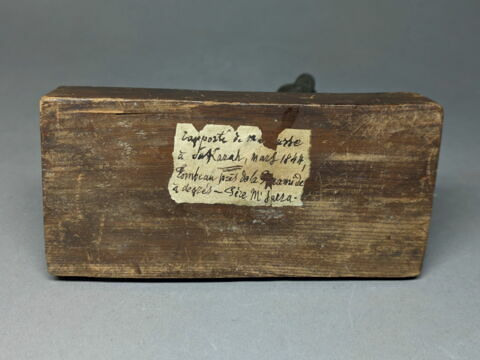 rapporté de
à Sakarah, mars 1844,
Tombeau près de la Pyramide
à degrés —